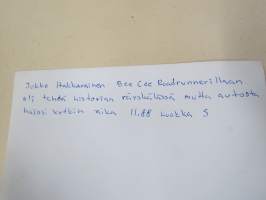 Jukka Hakkarainen Bee Cee Roadrunnerillaan
oli tehdä historian räväkässä mutta autosta
hajosi kytkin aika 11.88 luokka S